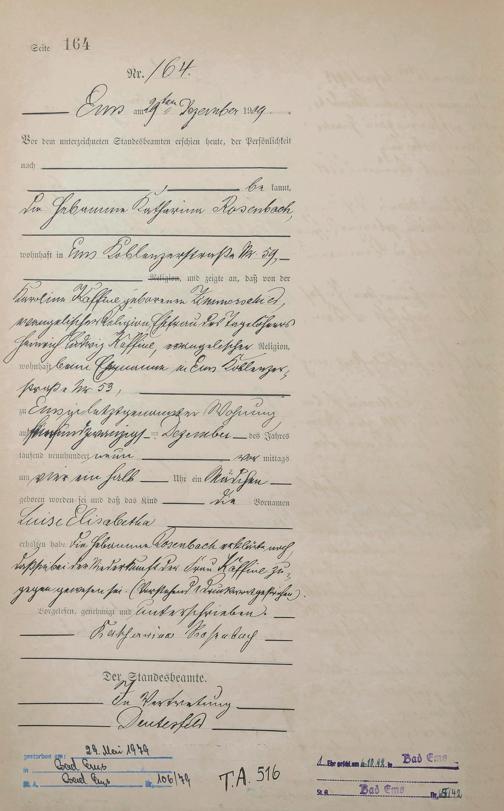 Seite 164
Nr. 164.
Ems am 29ten Dezember 1909.
Vor dem unterzeichneten Standesbeamten erschien heute, der Persönlichkeit
nach
be kannt,
die Hebamme Katharina Rosenbach,
wohnhaft in Ems Koblenzerstraße Nr. 59,
Religion, und zeigte an, daß von der
Karoline Käffine, geborenen
evangelischer Religion, Ehefrau des Tagelöhners
Heinrich Ludwig Käffine, evangelischer Religion,
wohnhaft beim Ehemanne in Ems Koblenzer-
straße Nr. 53,
zu Ems in letztgenannter Wohnung
am Dezember des Jahres
tausend neunhundert neun vor mittags
um vier ein halb Uhr ein Mädchen
geboren worden sei und daß das Kind die Vornamen
Luise Elisabetha
erhalten habe. Die Hebamme Rosenbach erklärte noch,
daß sie bei der Niederkunft der Frau Käffine zu-
gegen gewesen sei. (Vorstehend 1 Druckwort gestrichen).
Vorgelesen, genehmigt und unterschrieben.
Katharina Rosenbach
Der Standesbeamte.
In Vertretung
gestorben am: 29. Mai 1979
in Bad Ems
St. A. Bad Ems Nr. 106/79
T.A. 516
1. Ehe geschl. am in Bad Ems
St. A. Bad Ems Nr.